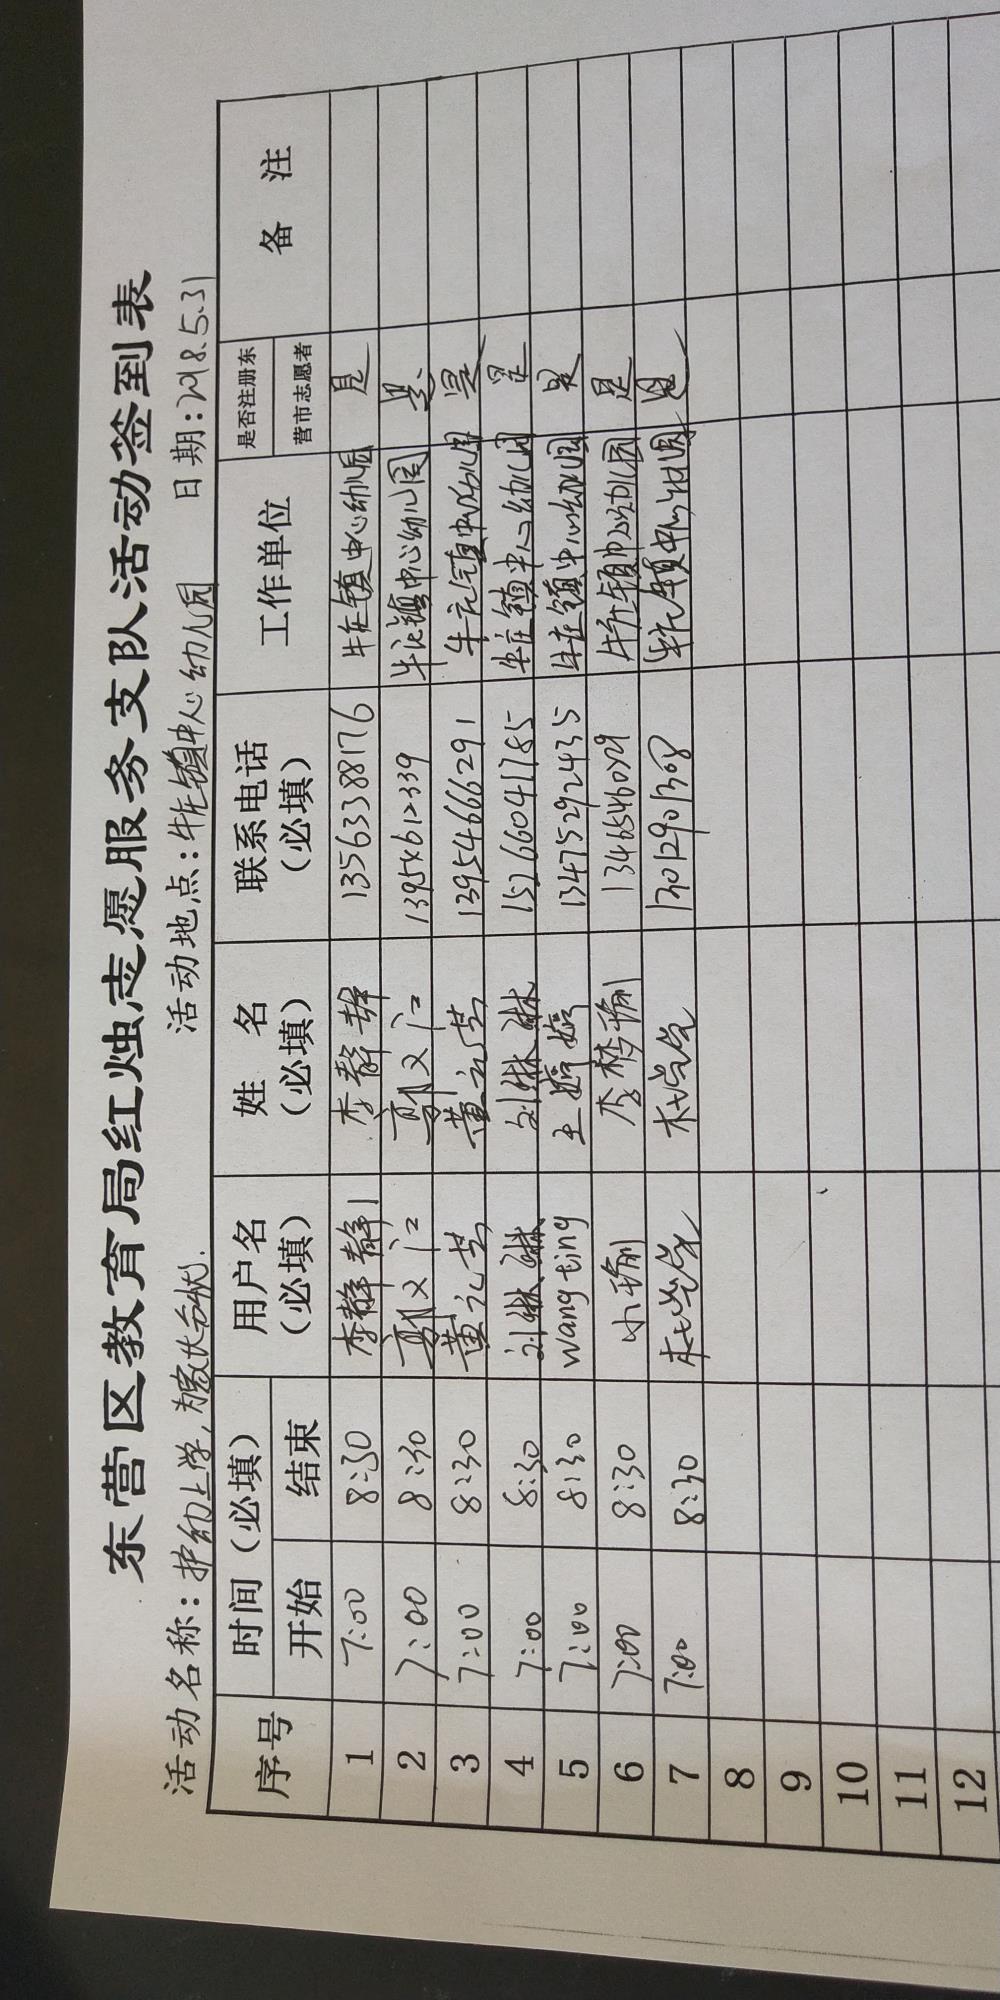 东营区教育局红烛志愿服务支队活动签到表
活动名称：护幼上学，为家长分忧. 活动地点：牛庄镇中心幼儿园 日期：2018.5.31
序号 时间（必填） 用户名（必填） 姓名（必填） 联系电话（必填） 工作单位 是否注册东营市志愿者 备注
开始 结束
1 7:00 8:30 李静静1 李静静 13563388176 牛庄镇中心幼儿园 是
2 7:00 8:30 郭文江 郭文江 13954612339 牛庄镇中心幼儿园 是
3 7:00 8:30 黄元芸 黄元芸 13954666291 牛庄镇中心幼儿园 是
4 7:00 8:30 刘琳琳 刘琳琳 15266041785 牛庄镇中心幼儿园 是
5 7:00 8:30 wang ting 王婷婷 13475292435 牛庄镇中心幼儿园 是
6 7:00 8:30 小瑜 李梦瑜 1346546029 牛庄镇中心幼儿园 是
7 7:00 8:30 13012901308 牛庄镇中心幼儿园 是
8
9
10
11
12